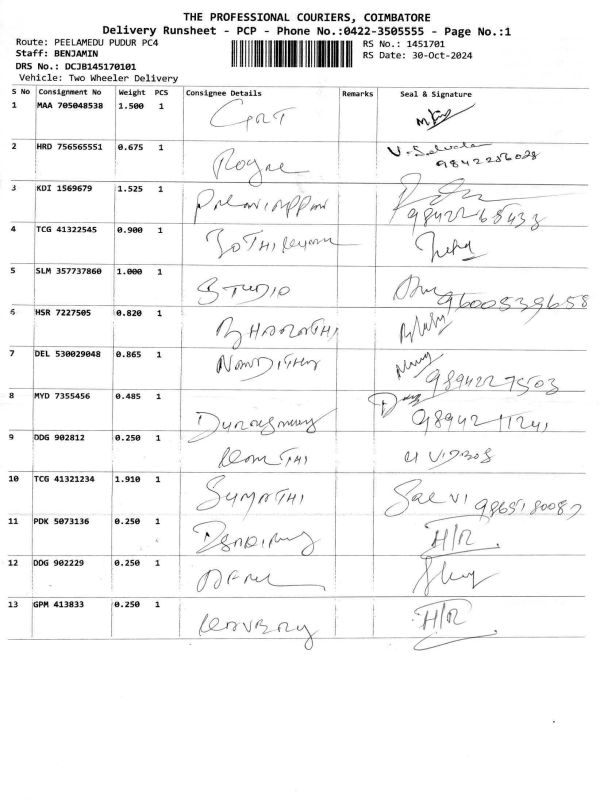 THE PROFESSIONAL COURIERS, COIMBATORE
Delivery Runsheet - PCP - Phone No.:0422-3505555 - Page No.:1
Route: PEELAMEDU PUDUR PC4
Staff: BENJAMIN
DRS No.: DCJB145170101
Vehicle: Two Wheeler Delivery
RS No.: 1451701
RS Date: 30-Oct-2024
S No Consignment No Weight PCS Consignee Details Remarks Seal & Signature
1 MAA 705048538 1.500 1 GRT
2 HRD 756565551 0.675 1 V. Selvala 9842256028
3 KDI 1569679 1.525 1 Palaniappan 9842268433
4 TCG 41322545 0.900 1
5 SLM 357737860 1.000 1 STUDIO 9600539658
6 HSR 7227505 0.820 1 BHARATHI
7 DEL 530029048 0.865 1 NANDITHA 9894227503
8 MYD 7355456 0.485 1 9894211241
9 DDG 902812 0.250 1
10 TCG 41321234 1.910 1 SUMATHI 9865180087
11 PDK 5073136 0.250 1 H/R
12 DDG 902229 0.250 1
13 GPM 413833 0.250 1 H/R